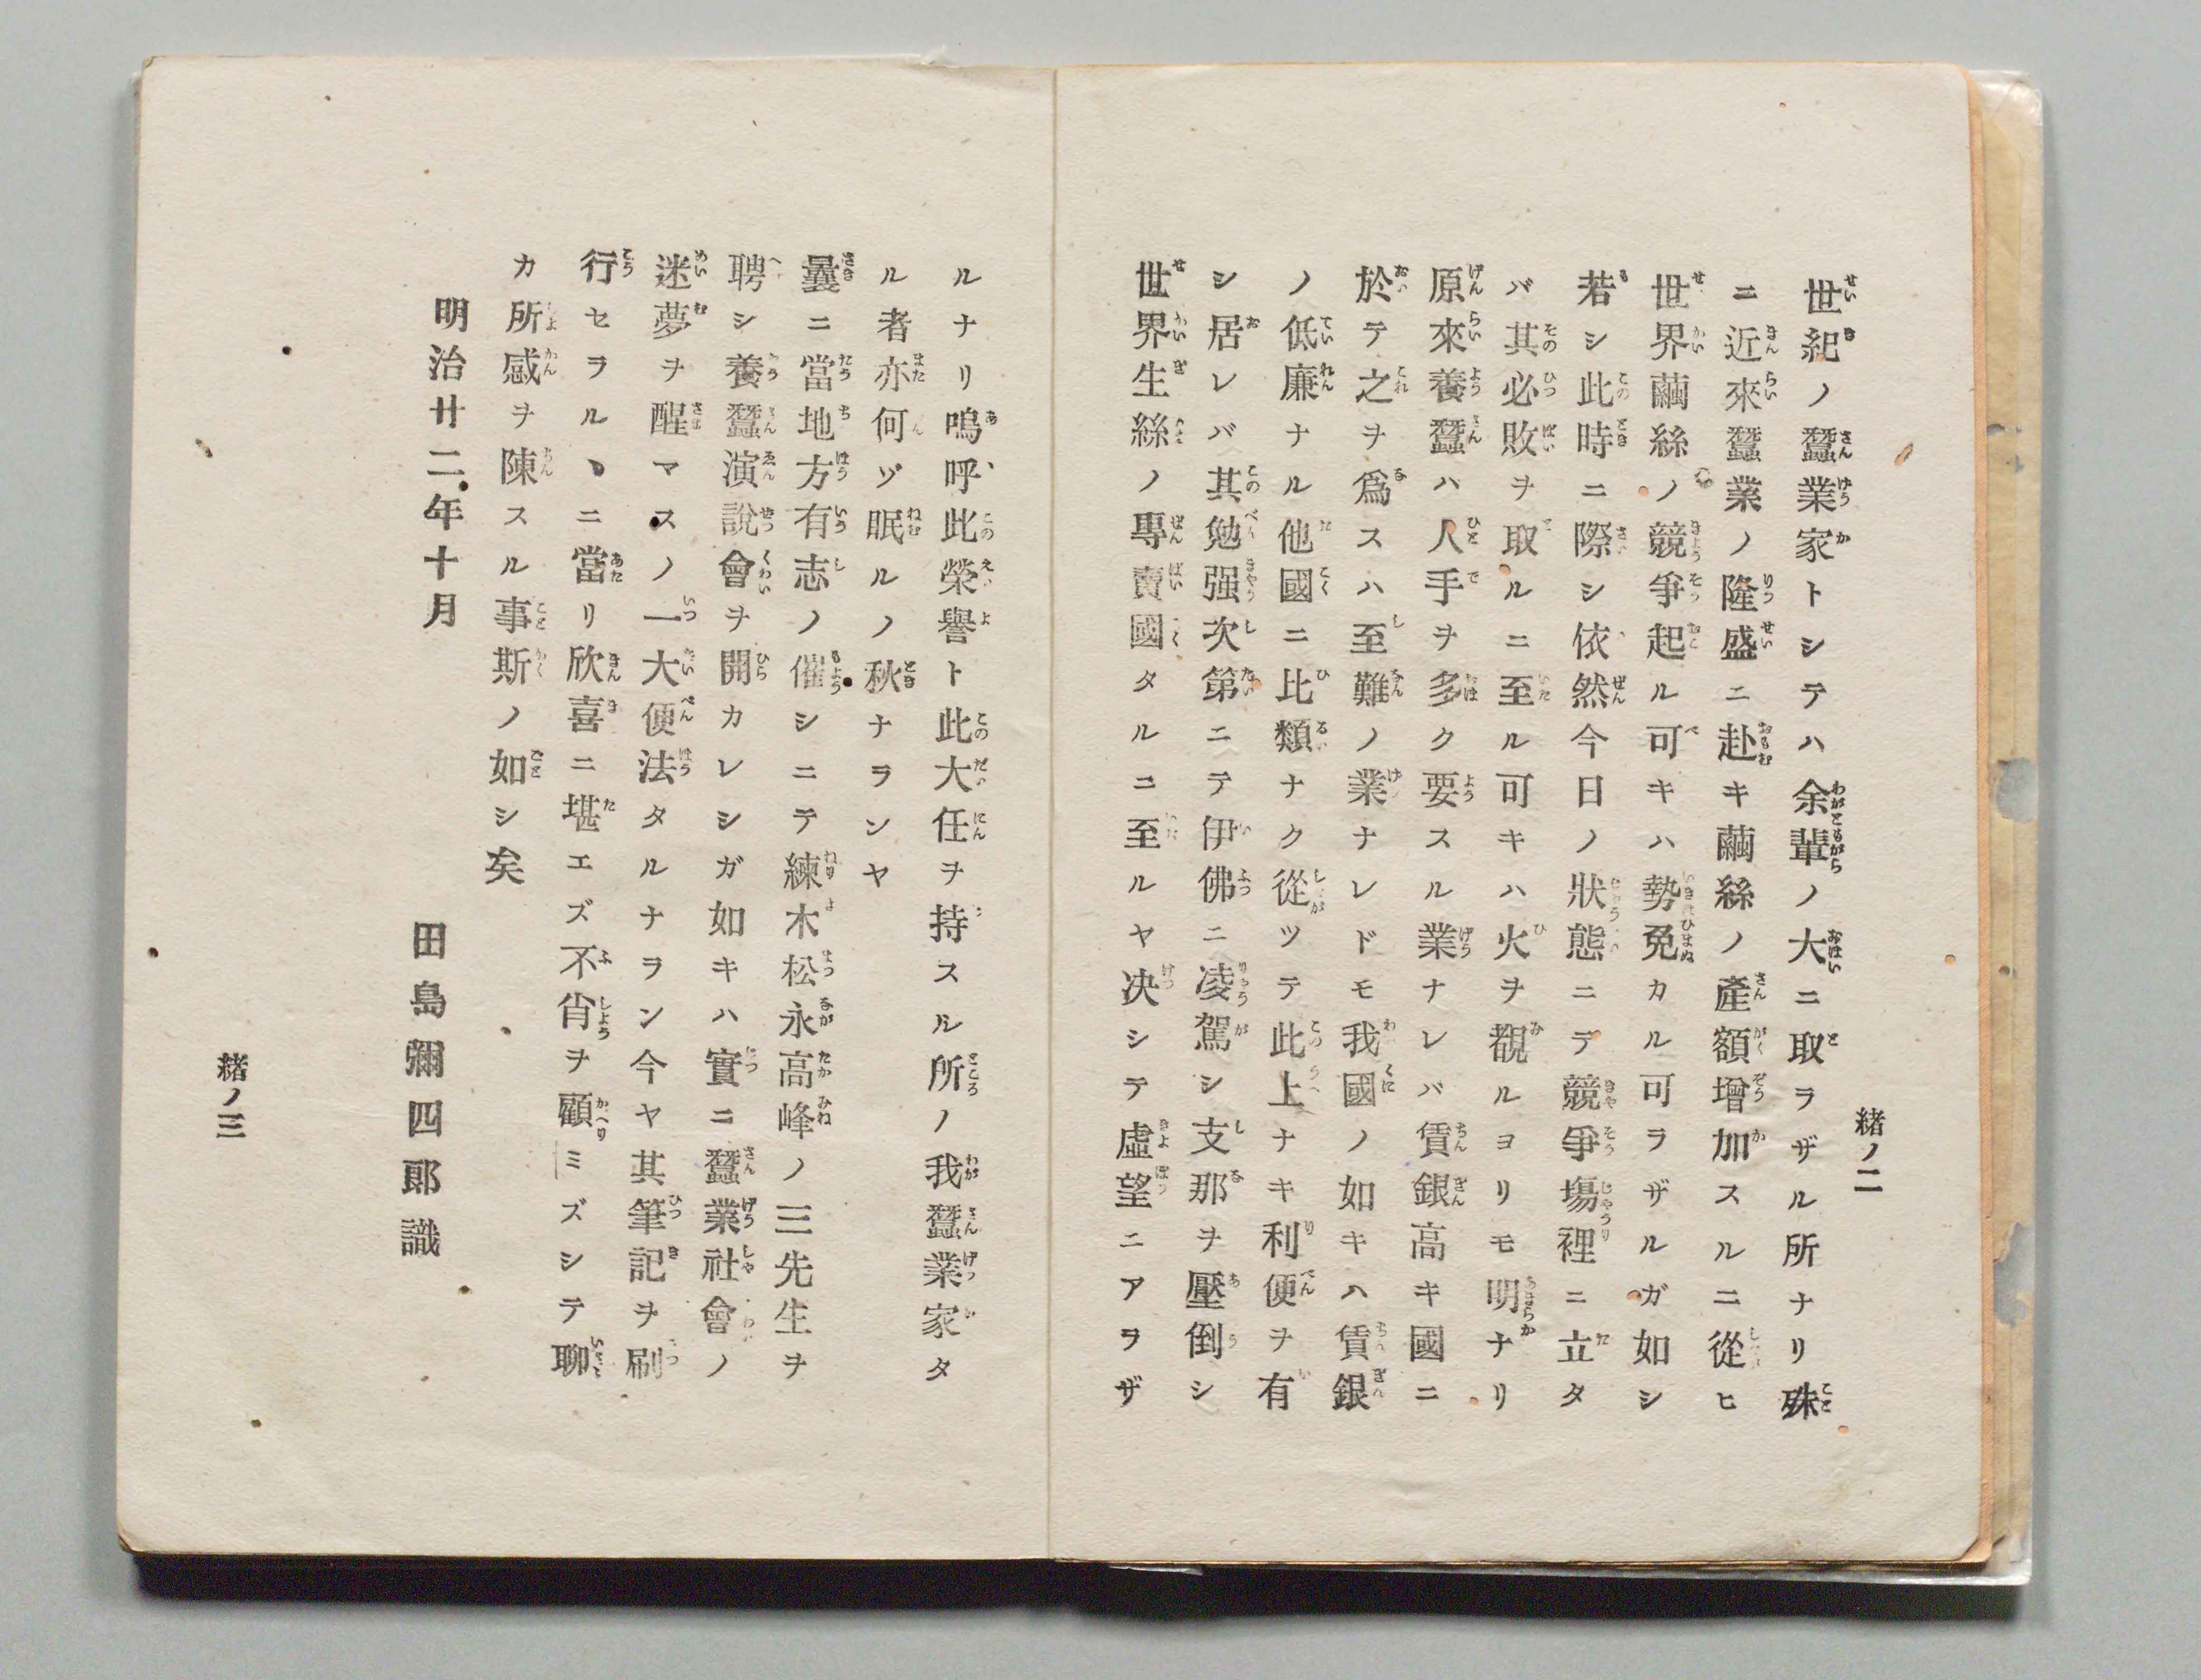 世紀ノ蠶業家トシテハ余輩ノ大ニ取ラザル所ナリ殊
ニ近來蠶業ノ隆盛ニ赴キ繭絲ノ產額增加スルニ從ヒ
世界繭絲ノ競爭起ル可キハ勢免カル可ラザルガ如シ
若シ此時ニ際シ依然今日ノ狀態ニテ競爭塲裡ニ立タ
バ其必敗ヲ取ルニ至ル可キハ火ヲ觀ルヨリモ明ナリ
原來養蠶ハ人手ヲ多ク要スル業ナレバ賃銀高キ國ニ
於テ之ヲ爲スハ至難ノ業ナレドモ我國ノ如キハ賃銀
ノ低廉ナル他國ニ比類ナク從ツテ此上ナキ利便ヲ有
シ居レバ其勉强次第ニテ伊佛ニ凌駕シ支那ヲ壓倒シ
世界生絲ノ專賣國タルニ至ルヤ决シテ虛望ニアラザ
緖ノ二
ルナリ嗚呼此榮譽ト此大任ヲ持スル所ノ我蠶業家タ
ル者亦何ゾ眠ルノ秋ナランヤ
曩ニ當地方有志ノ催シニテ練木松永高峰ノ三先生ヲ
聘シ養蠶演說會ヲ開カレシガ如キハ實ニ蠶業社會ノ
迷夢ヲ醒マスノ一大便法タルナラン今ヤ其筆記ヲ刷
行セラルヽニ當リ欣喜ニ堪エズ不肖ヲ顧ミズシテ聊
カ所感ヲ陳スル事斯ノ如シ矣
明治廿二年十月
田島彌四郎識
緖ノ三